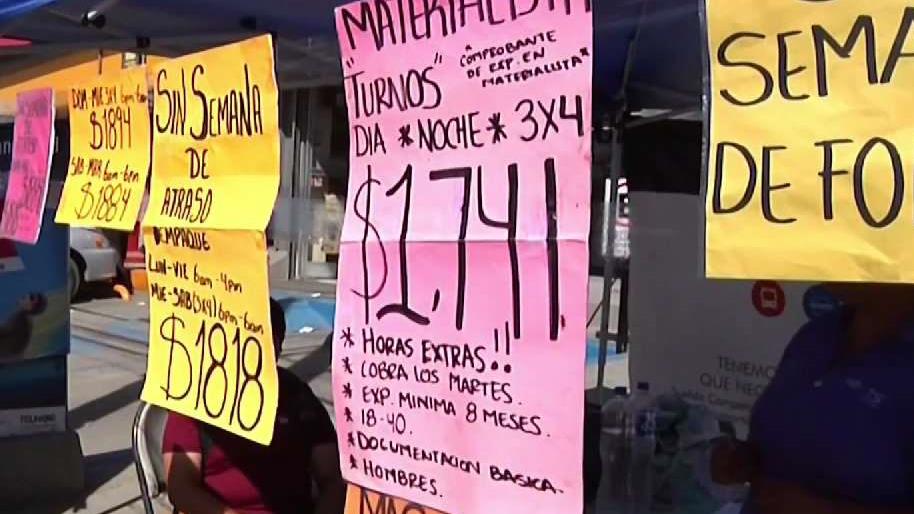 DOM-MIE 3X4 6pm-6am
$1894
SAB-MAR 6am-6pm
$1884
SIN SEMANA
DE
ATRASO
EMPAQUE
LUN-VIE 6am-4pm
MIE-SAB(3X4) 6pm-6am
$1818
MATERIALISTA
"TURNOS"
*COMPROBANTE
DE EXP. EN
MATERIALISTA*
DIA *NOCHE* 3X4
$1,741
* HORAS EXTRAS!!
* COBRA LOS MARTES.
* EXP. MINIMA 8 MESES.
* 18-40.
*DOCUMENTACION BASICA.
* HOMBRES.
SEMA
DE FO
TENEMO
QUE NEC